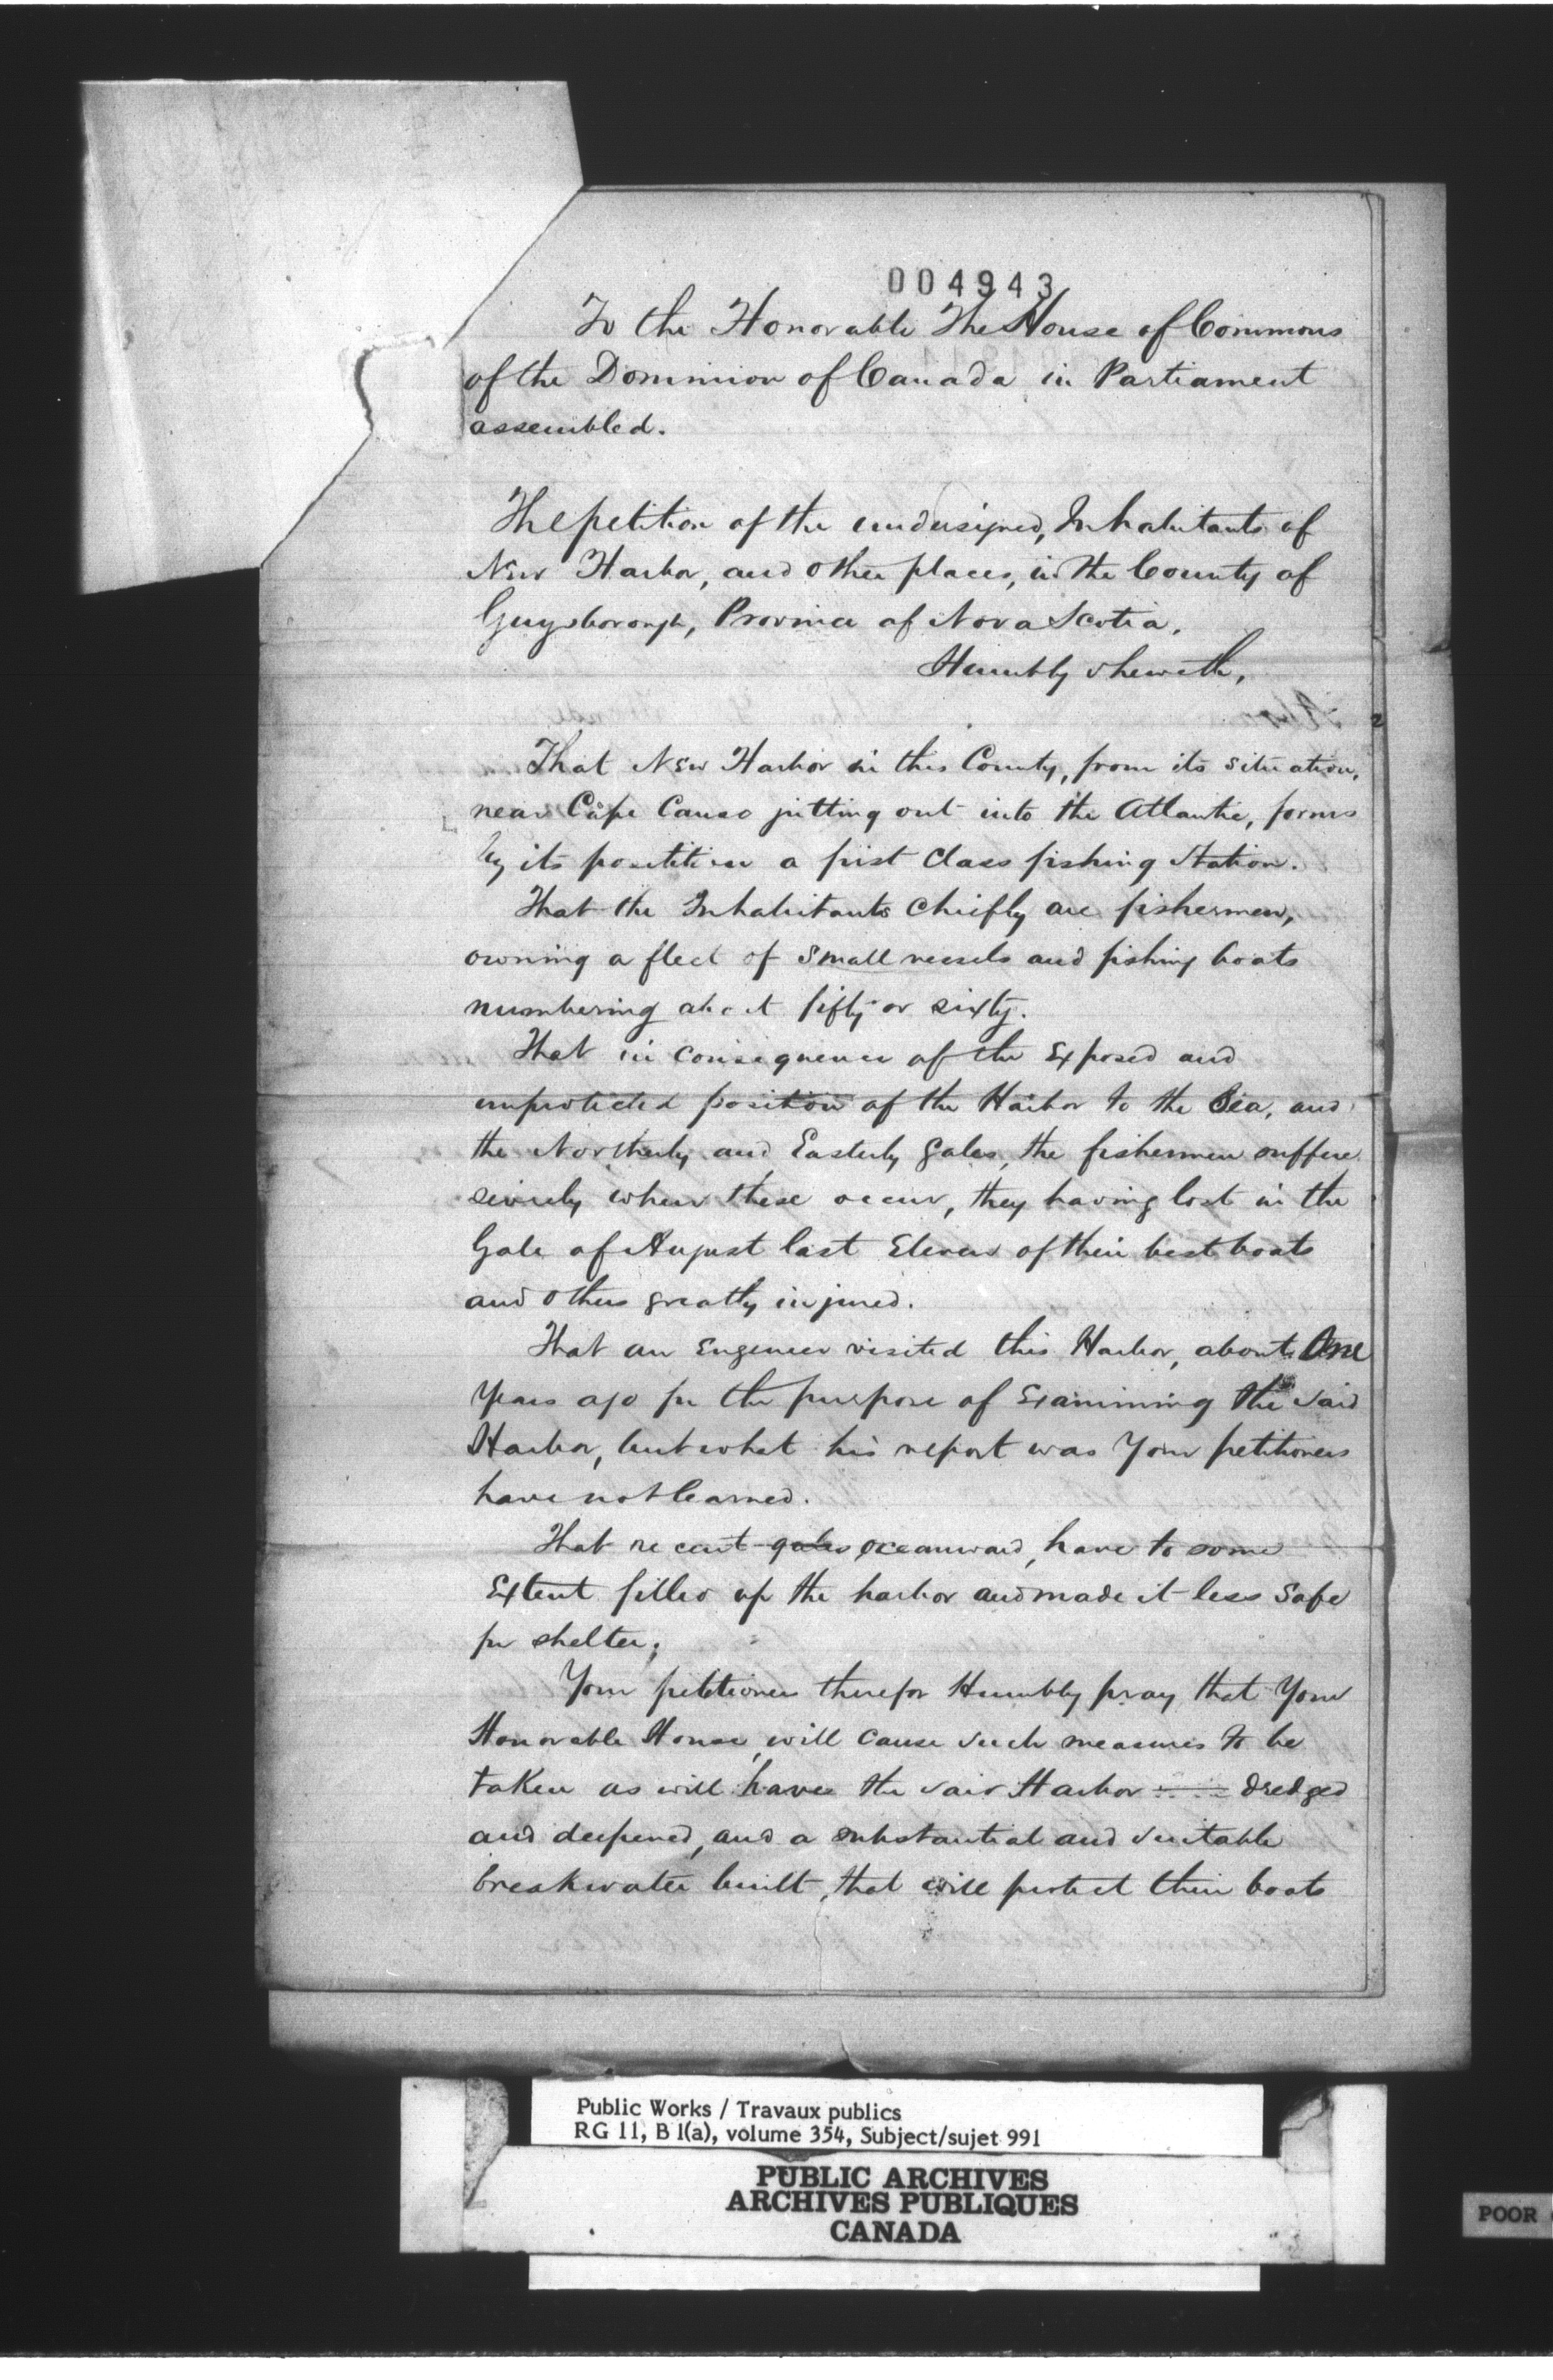 004943
To the Honorable The House of Commons
of the Dominion of Canada in Parliament
assembled.
The petition of the undersigned, Inhabitants of
New Harbor, and other places, in the County of
Guysborough, Province of Nova Scotia,
Humbly sheweth,
That New Harbor in this County, from its situation,
near Cape Canso jutting out into the Atlantic, forms
by its position a first class fishing Station.
That the Inhabitants chiefly are fishermen,
owning a fleet of small vessels and fishing boats
numbering about fifty or sixty.
That in consequence of the Exposed and
unprotected position of the Harbor to the Sea, and
the Northerly and Easterly gales, the fishermen suffere
severely when these occur, they having lost in the
Gale of August last Eleven of their best boats
and others greatly injured.
That an Engineer visited this Harbor, about One
Years ago for the purpose of Examining the said
Harbor, but what his report was Your petitioners
have not learned.
That recent gales oceanward, have to some
Extent filled up the harbor and made it less safe
for shelter;
Your petitioners therefor Humbly pray that Your
Honorable House, will cause such measures to be
taken as will have the said Harbor dredged
and deepened, and a substantial and suitable
breakwater built, that will protect their boats
Public Works / Travaux publics
RG 11, B 1(a), volume 354, Subject/sujet 991
PUBLIC ARCHIVES
ARCHIVES PUBLIQUES
CANADA
POOR